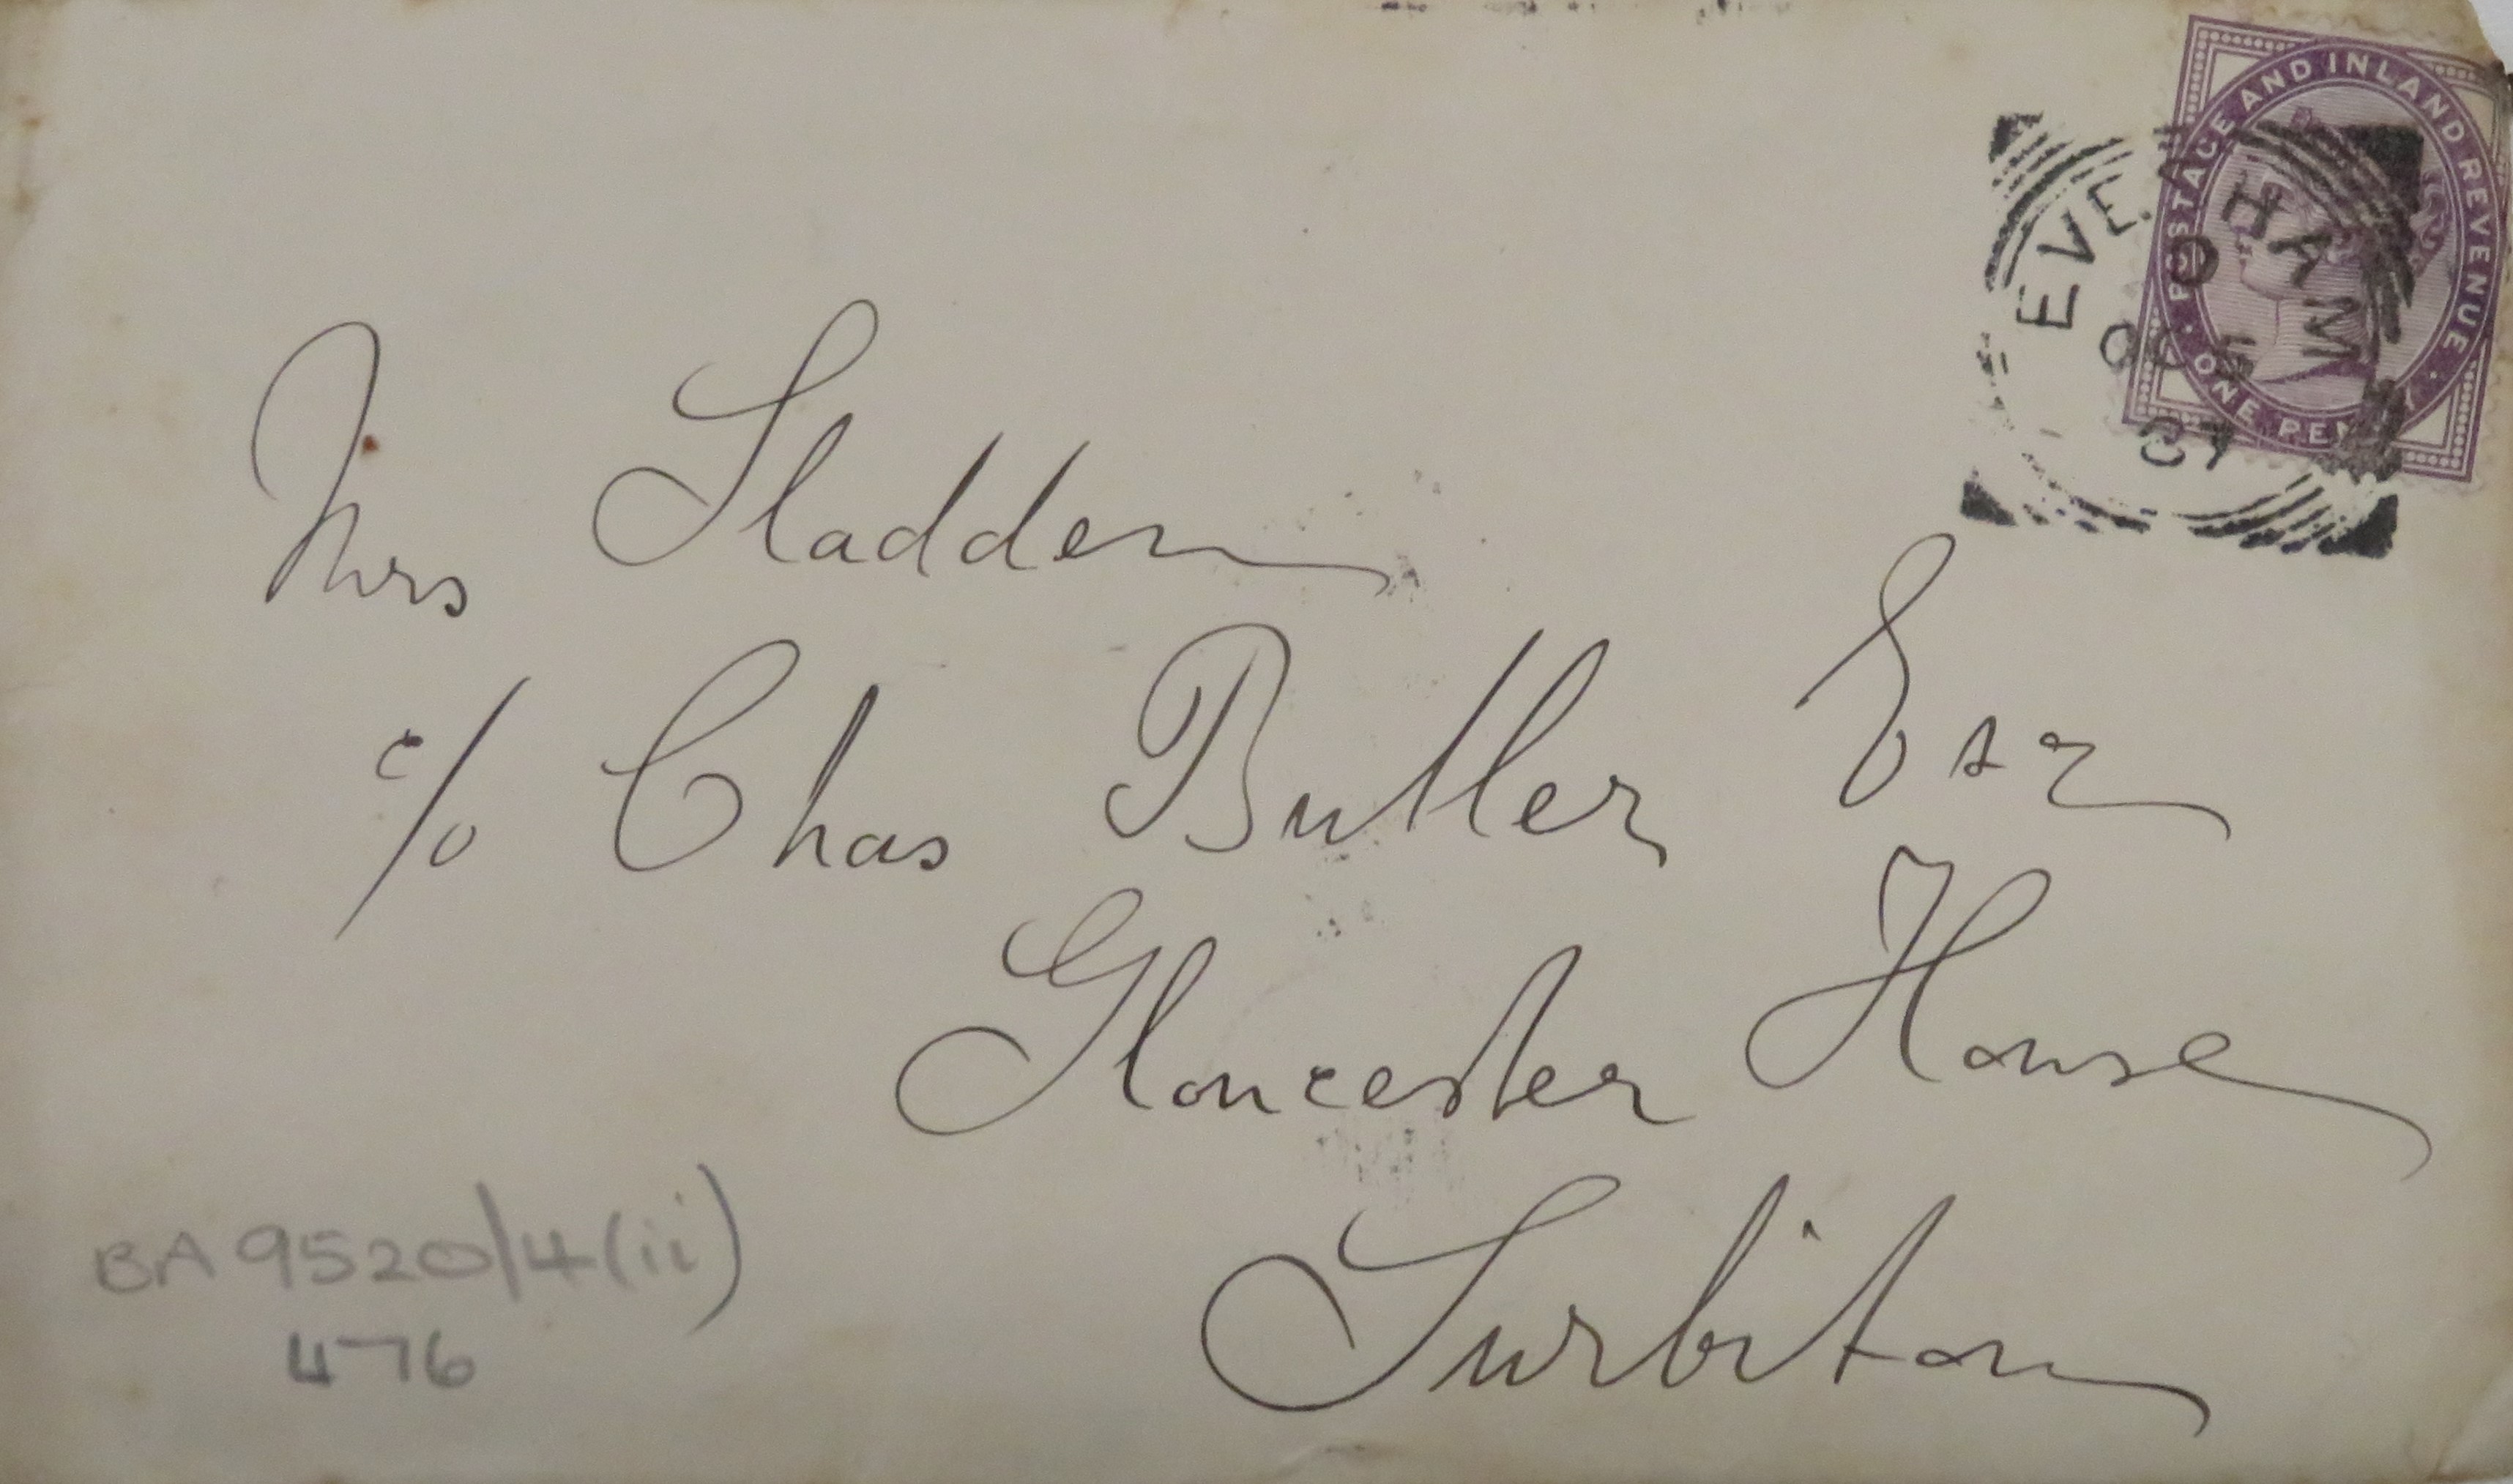 POSTAGE AND INLAND REVENUE
ONE PENNY
EVESHAM
D
OC
Mrs Sladden
c/o Chas Butler Esq
Gloucester House
Surbiton
BA 9520/4(ii)
476